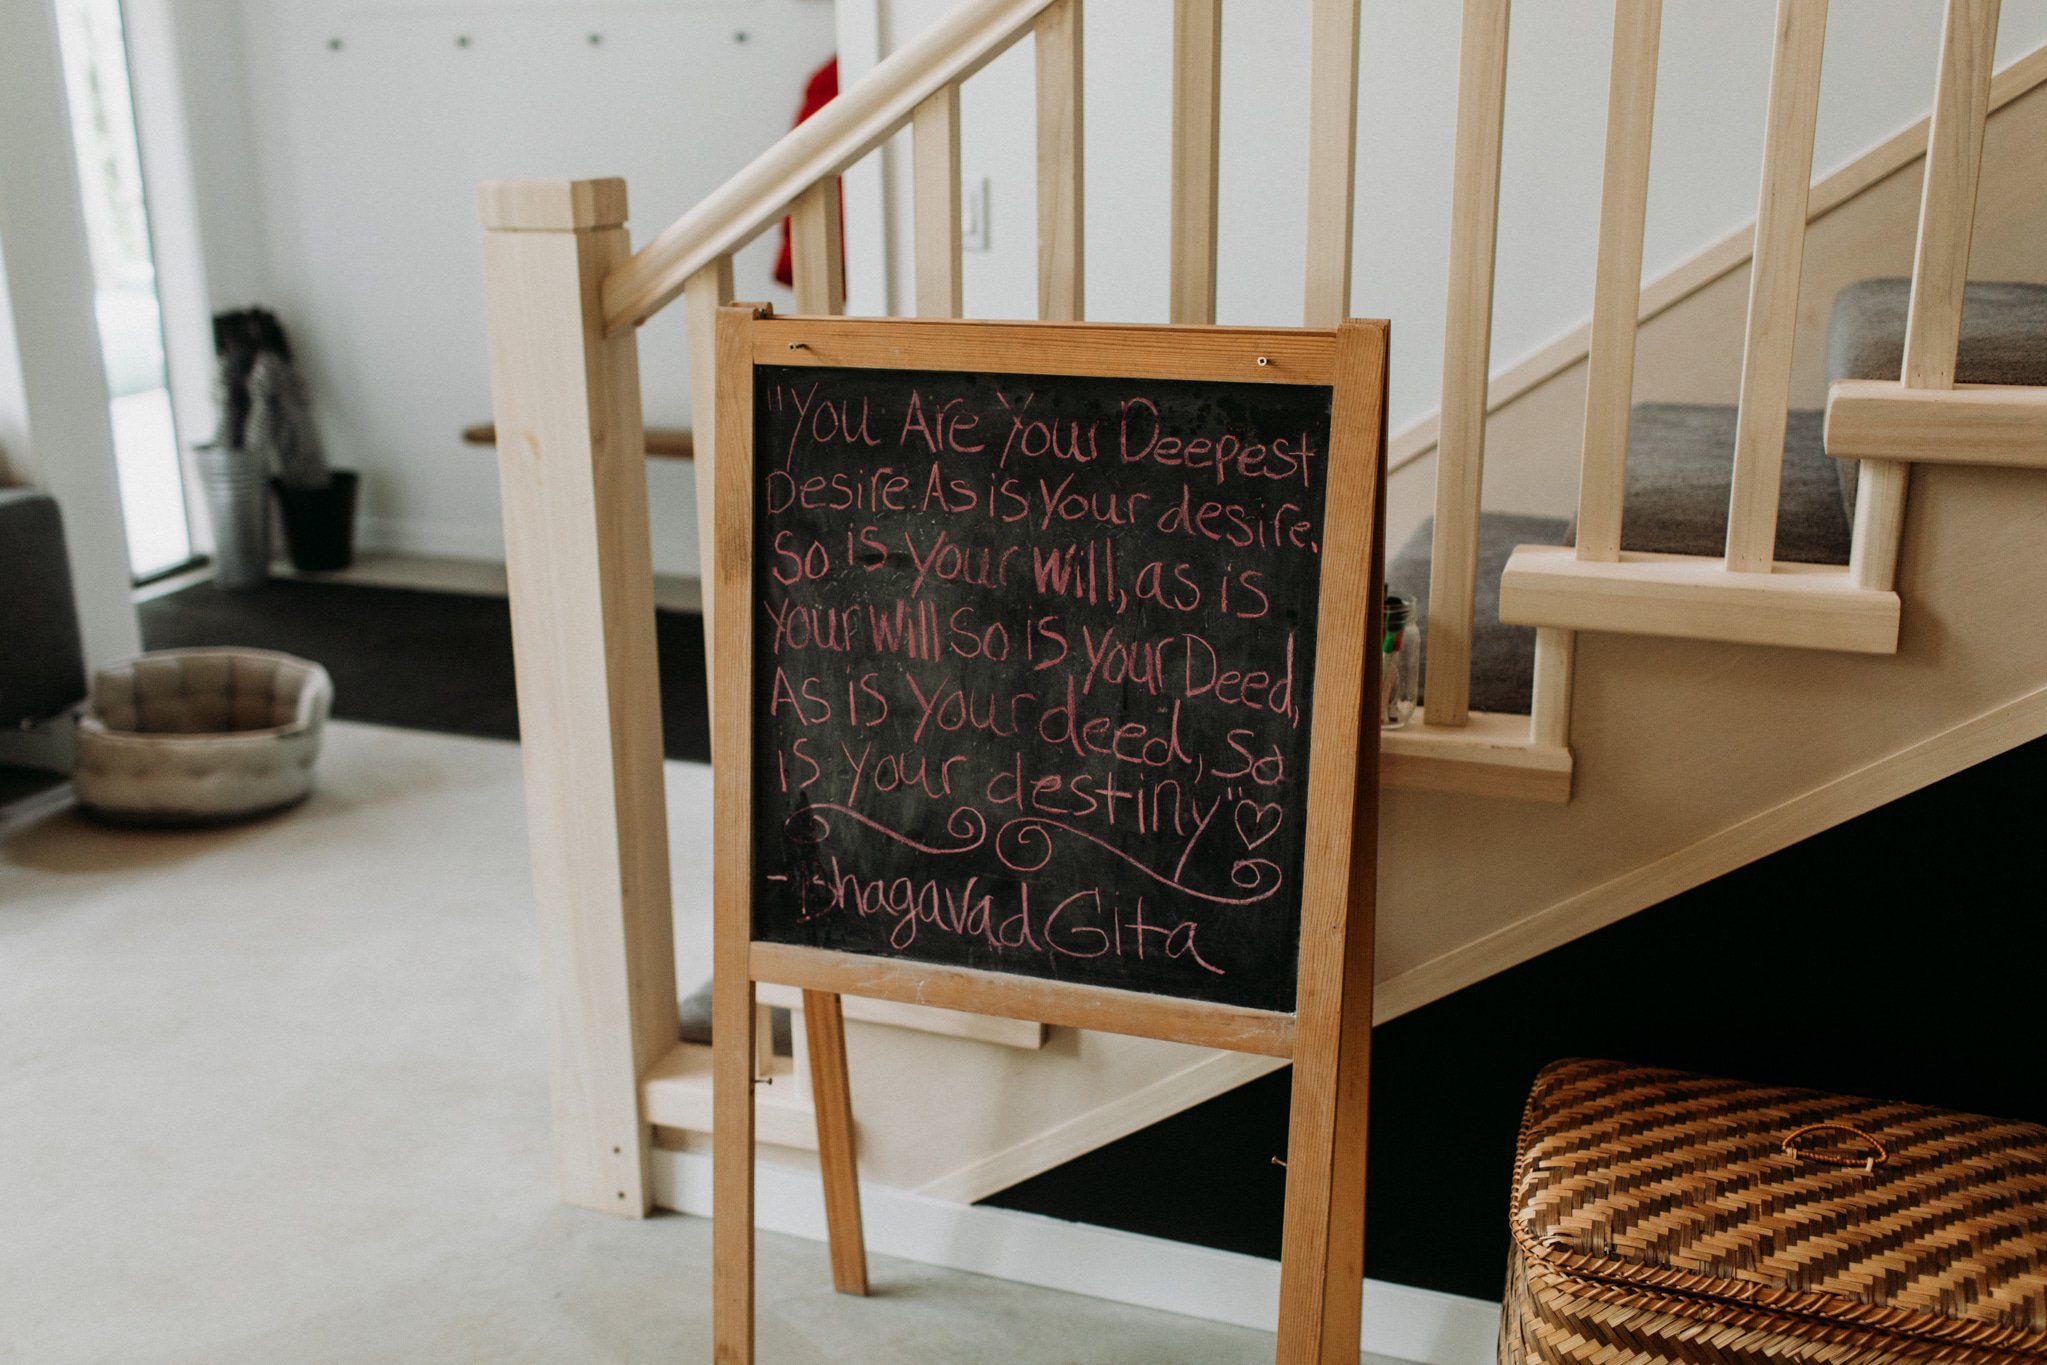 "You Are Your Deepest
Desire. As is Your desire.
So is your will, as is
your will so is your Deed,
As is your deed, so
is your destiny"
- Bhagavad Gita